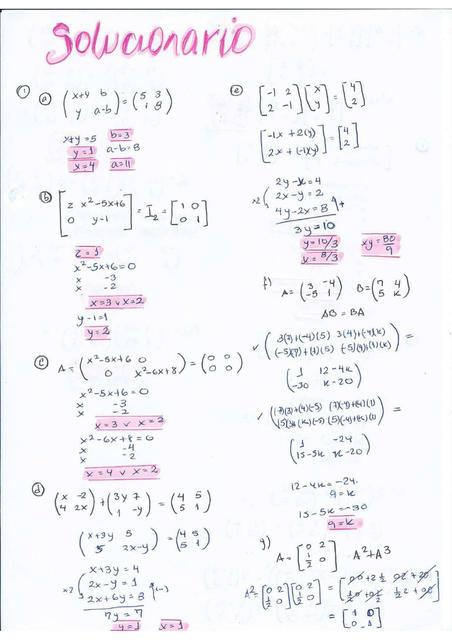 Solucionario
①
ⓐ (x+y b
y a-b) = (5 3
1 8)
x+y=5 b=3
y=1 a-b=8
x=4 a=11
ⓑ [z x²-5x+6
0 y-1] = I₂ = [1 0
0 1]
z=1
x²-5x+6=0
x -3
x -2
x=3 v x=2
y-1=1
y=2
ⓒ A = (x²-5x+6 0
0 x²-6x+8) = (0 0
0 0)
x²-5x+6=0
x -3
x -2
x=3 v x=2
x²-6x+8=0
x -4
x -2
x=4 v x=2
ⓓ (x -2
4 2x) + (3y 7
1 -y) = (4 5
5 1)
(x+3y 5
5 2x-y) = (4 5
5 1)
x+3y=4
x2 2x-y=1
2x+6y=8 (-)
7y=7
y=1 x=1
ⓔ [-1 2
2 -1] [x
y] = [4
2]
[-1x + 2(y)
2x + (-1)(y)] = [4
2]
2y-x=4
x2 2x-y=2
4y-2x=8 +
3y=10
y=10/3
x=8/3 xy=80/9
f) A = (3 -4
-5 1) B = (7 4
5 k)
AB = BA
✓ (3(7)+(-4)(5) 3(4)+(-4)(k)
(-5)(7)+(1)(5) (-5)(4)+(1)(k)) =
(1 12-4k
-30 k-20)
✓ (7)(3)+(4)(-5) (7)(-4)+(4)(1)
(1 -24
15-5k k-20)
12-4k=-24
9=k
15-5k=-30
9=k
g) A = [0 2
½ 0] A²+A³
A² = [0 2
½ 0] [0 2
½ 0] =
= [1 0
0 1]